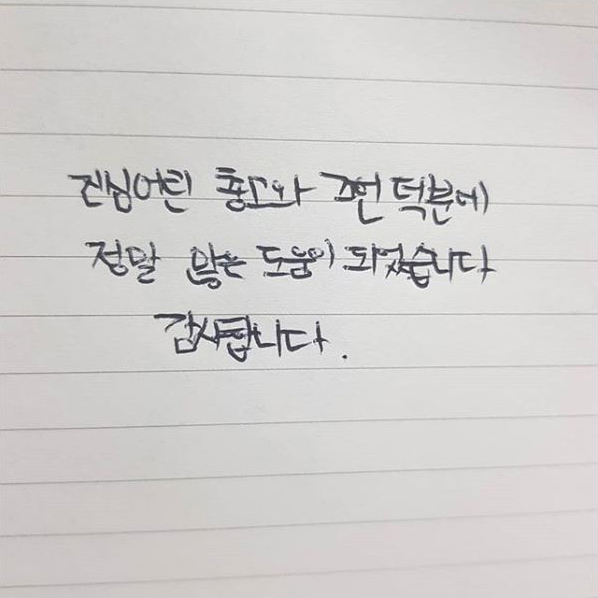 진심어린 충고와 조언 덕분에
정말 많은 도움이 되었습니다
감사합니다.